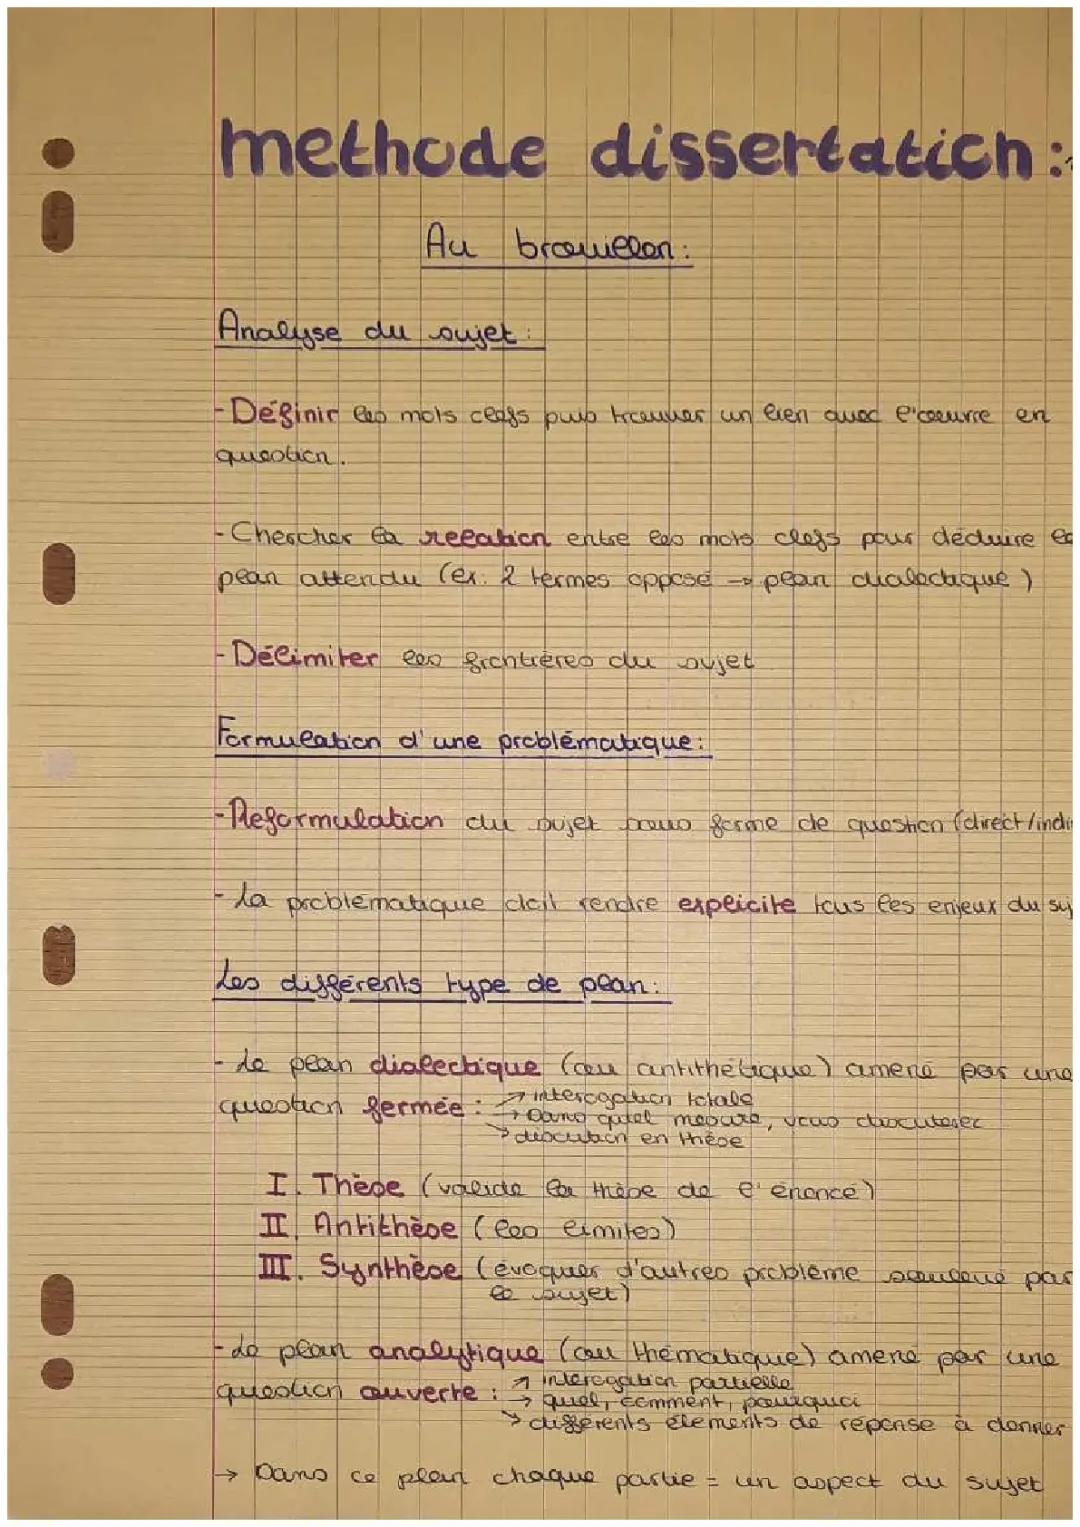 methode dissertation :
Au brouillon :
Analyse du sujet :
- Définir les mots clefs puis trouver un lien avec l'œuvre en
question.
- Chercher la relation entre les mots clefs pour déduire le
plan attendu (ex. 2 termes opposé → plan dialectique)
- Délimiter les frontières du sujet
Formulation d'une problématique :
- Reformulation du sujet sous forme de question (direct/indi
- La problématique doit rendre explicite tous les enjeux du suj
Les différents type de plan :
- Le plan dialectique (ou antithétique) amené par une
question fermée : → interogation totale
→ Dans quel mesure, vous discuterez
→ discution en thèse
I. Thèse (valide la thèse de l'énoncé)
II. Antithèse (les limites)
III. Synthèse (évoquer d'autres problème soulevé par
le sujet)
- Le plan analytique (ou thématique) amené par une
question ouverte : → interogation partielle
→ quel, comment, pourquoi
→ différents éléments de réponse à donner
→ Dans ce plan chaque partie = un aspect du sujet